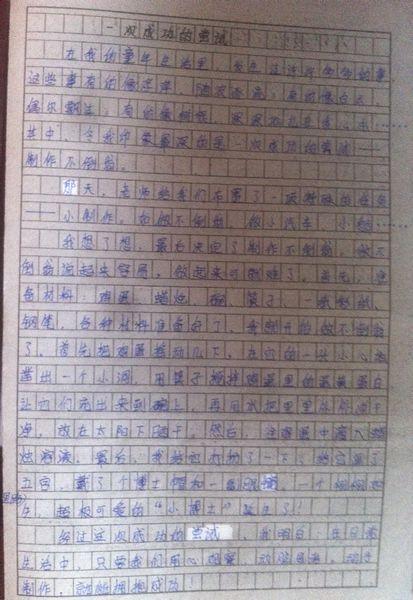 一次成功的尝试
在我的童年生活里，发生过许许多多的事，
这些事有的像浮萍，随波逐流；有的像白云，
偶尔飘过；有的像树根，
其中，令我印象最深的是一次成功的尝试——
制作不倒翁。
那天，老师给我们布置了一项特殊的任务
——小制作。如做不倒翁、做小汽车、小船
我想了想，最后决定了制作不倒翁。做不
倒翁说起来容易，做起来可就难了。首先，准
备材料：鸡蛋、蜡烛、碗、筷子、一张彩纸、
钢笔，各种材料准备好了，我就开始做不倒翁
了。首先把鸡蛋摇动几下，在它的一头小心地
凿出一个小洞，用筷子搅拌鸡蛋里的蛋黄蛋白
让它们流出来到碗上，再用水把里里外外洗干
净，放在太阳下晒干。然后，往鸡蛋中滴入蜡
烛溶液。最后，我给它打扮了一下：给它画了
五官，戴了个博士帽和一副眼镜，一个栩栩如
生、超极可爱的“小博士”诞生了！
经过这次成功的尝试，我明白：在日常
生活中，只要我们用心观察，动脑思考，动手
制作，就能拥抱成功！